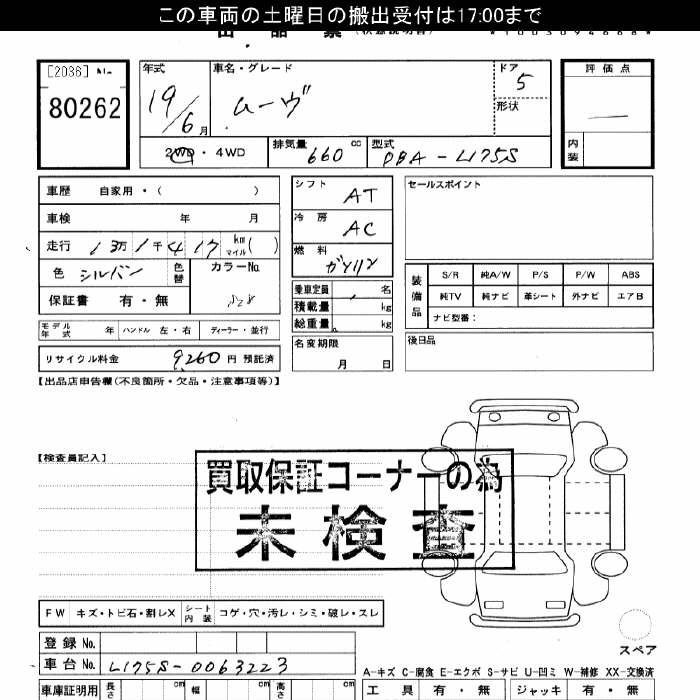 この車両の土曜日の搬出受付は17:00まで
[2036] No.
80262
年式
19/6月
車名・グレード
ムーヴ
ドア
5
形状
評価点
内装
2WD・4WD
排気量 660 cc
型式 DBA-L175S
車歴 自家用・( )
車検 年 月
走行 13万1千417 km マイル( )
色 シルバー 色替
カラーNo.
保証書 有・無
S28
モデル年式 年 ハンドル 左・右 ディーラー・並行
リサイクル料金 9,260 円 預託済
シフト AT
冷房 AC
燃料 ガソリン
乗車定員 名
積載量 kg
総重量 kg
名変期限
月 日
セールスポイント
装備品
S/R 純A/W P/S P/W ABS
純TV 純ナビ 革シート 外ナビ エアB
ナビ型番:
後日品
【出品店申告欄(不良箇所・欠品・注意事項等)】
【検査員記入】
買取保証コーナーの為
未検査
FW キズ・トビ石・割レX シート内装 コゲ・穴・汚レ・シミ・破レ・スレ
登録No.
車台No. L175S-0063223
スペア
A-キズ C-腐食 E-エクボ S-サビ U-凹ミ W-補修 XX-交換済
車庫証明用 長さ cm 幅 cm 高さ cm
工具 有・無 ジャッキ 有・無